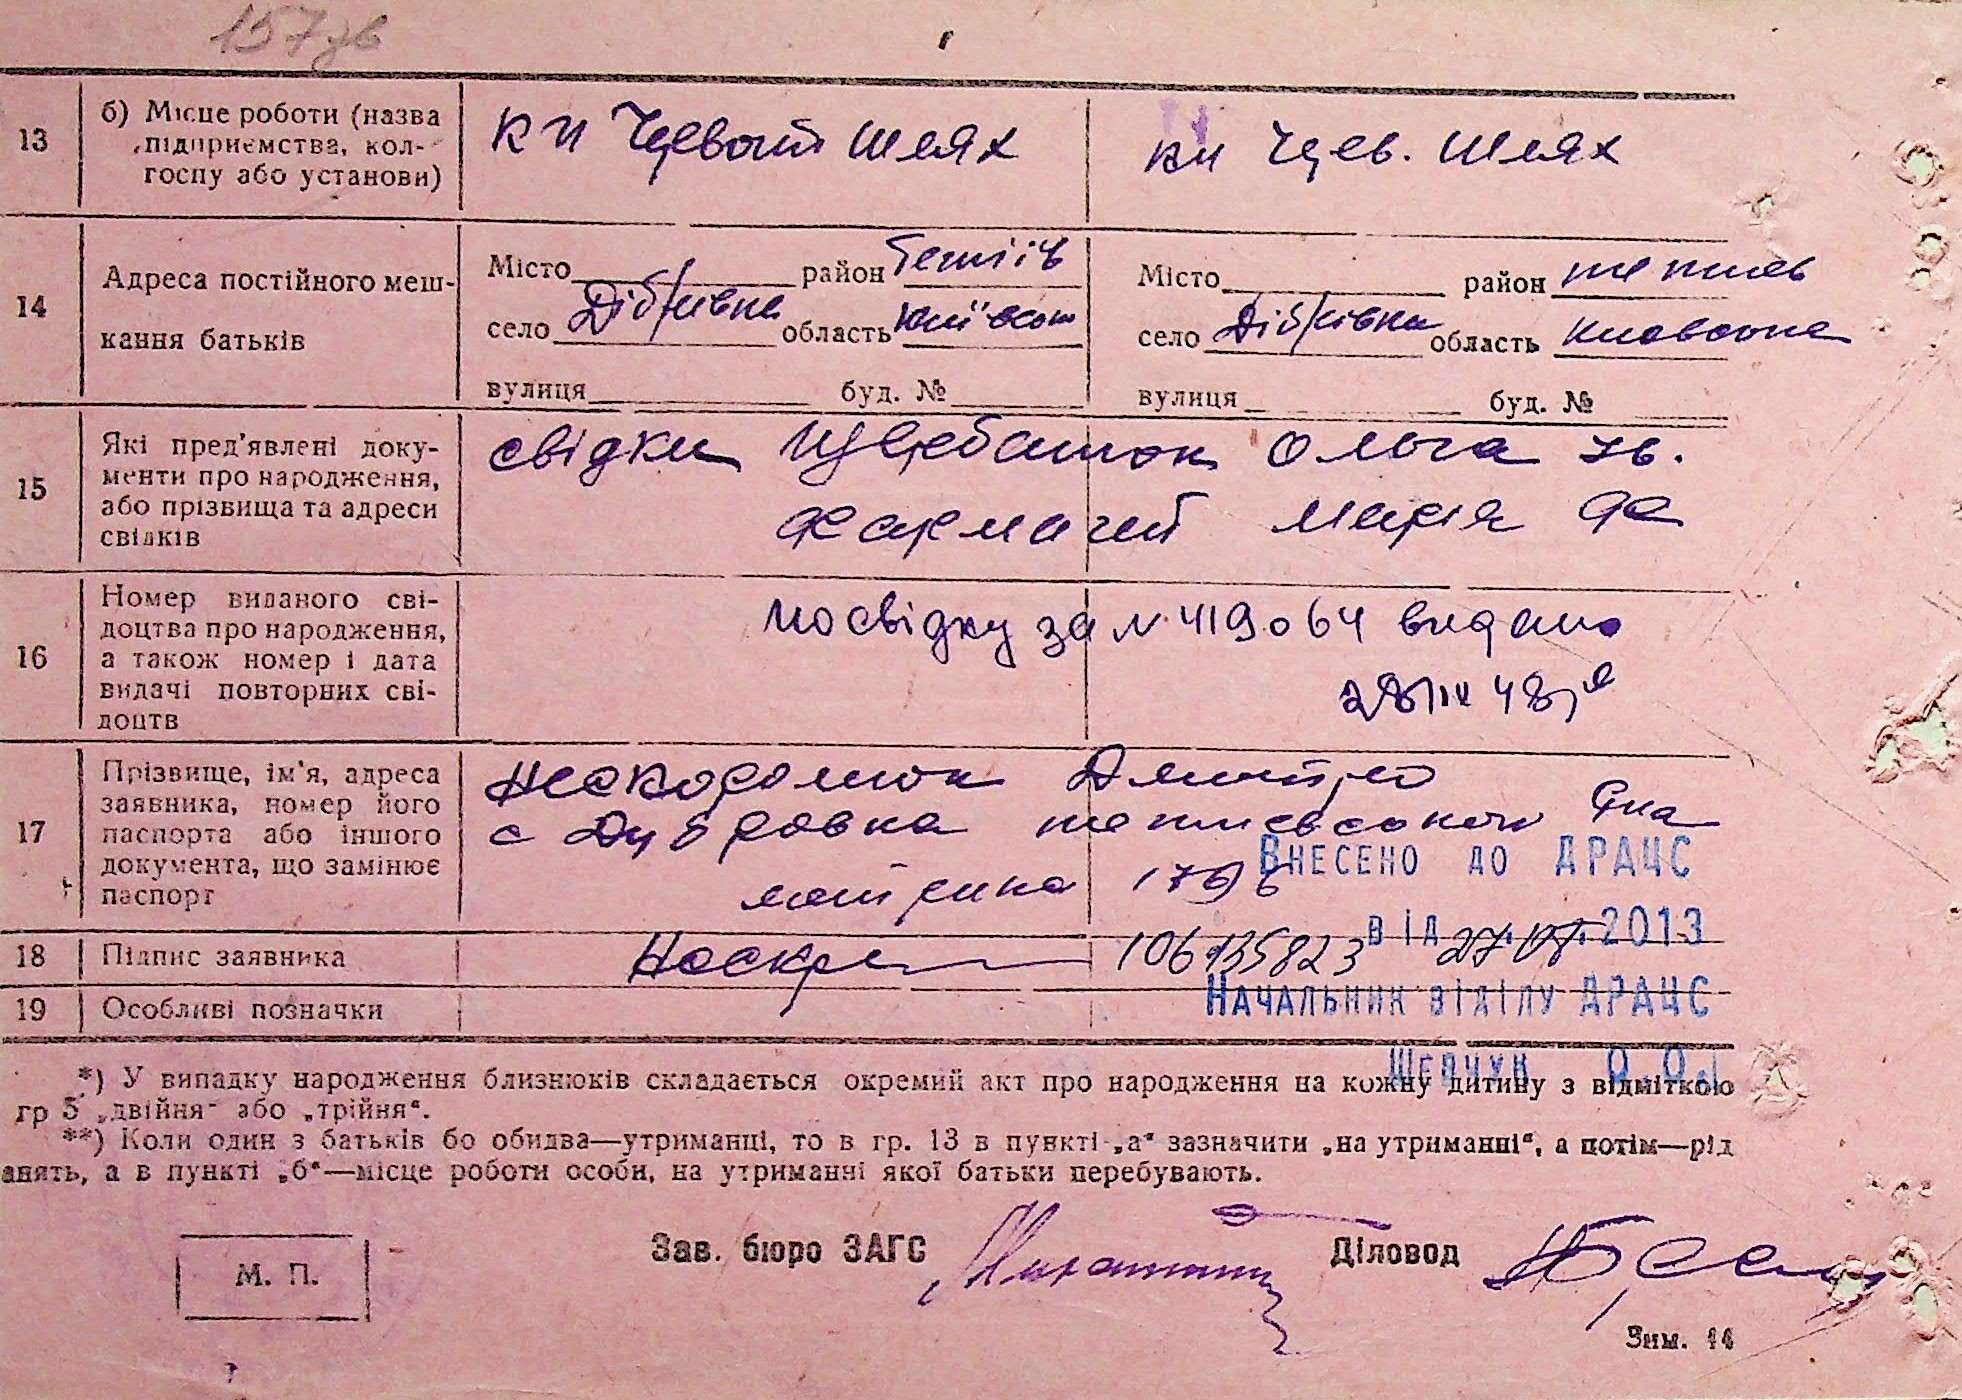 157 зв
13
б) Місце роботи (назва
підприємства, кол-
госпу або установи)
кп Червоний Шлях
кп Черв. Шлях
14
Адреса постійного меш-
кання батьків
Місто район Тетіїв
село Дібрівка область
вулиця буд. №
Місто район тетиев
село Дібрівка область Киевская
вулиця буд. №
15
Які пред'явлені доку-
менти про народження,
або прізвища та адреси
свідків
свідки Ольга Ів.
Марія
16
Номер виданого сві-
доцтва про народження,
а також номер і дата
видачі повторних сві-
доцтв
посвідку за N 419064 видано
28/IV 48 р
17
Прізвище, ім'я, адреса
заявника, номер його
паспорта або іншого
документа, що замінює
паспорт
Нескородюк Дмитро
с Дубровка тетиевского р-на
1796
Внесено до ДРАЦС
18
Підпис заявника
106135823
від 27.07.2013
19
Особливі позначки
Начальник відділу ДРАЦС
Шевчук О.О.
*) У випадку народження близнюків складається окремий акт про народження на кожну дитину з відміткою
гр 5 „двійня" або „трійня".
**) Коли один з батьків бо обидва—утриманці, то в гр. 13 в пункті „а" зазначити „на утриманні", а потім—рід
анять, а в пункті „б"—місце роботи особи, на утриманні якої батьки перебувають.
М. П.
Зав. бюро ЗАГС
Діловод
Зим. 14